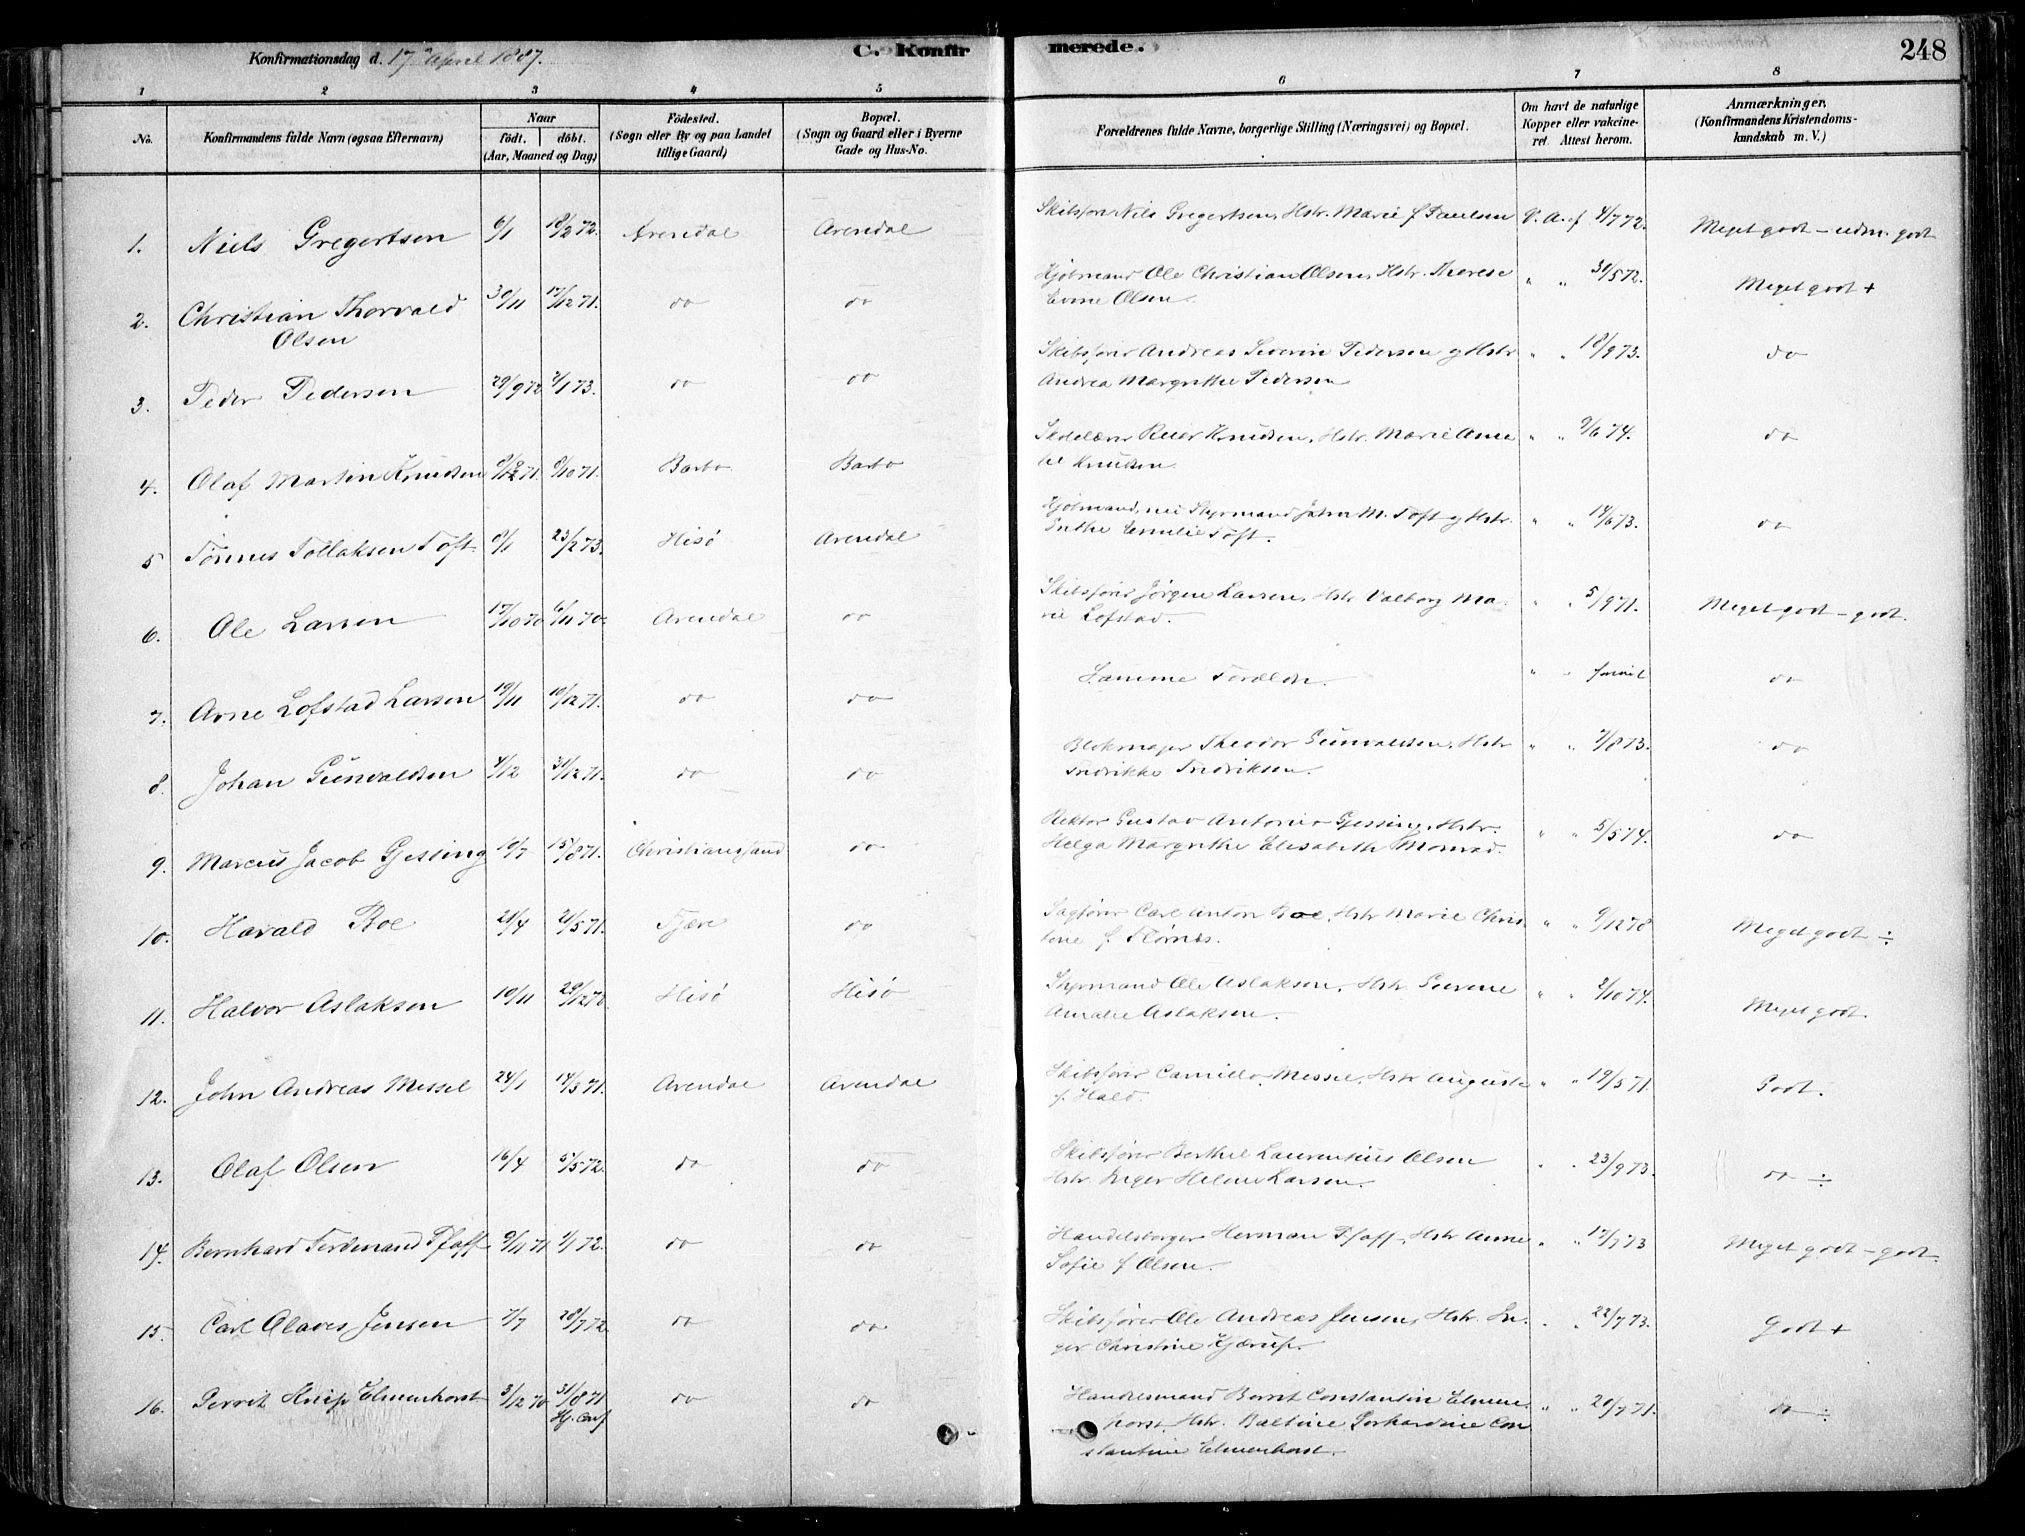 Konfirmationsdag d. 17de April 1887. C. Konfirmerede. 248
1 2 3 4 5 6 7 8
No. Konfirmandens fulde Navn (ogsaa Efternavn) Naar födt. döbt. (Aar, Maaned og Dag) Födested. (Sogn eller By og paa Landet tillige Gaard) Bopæl. (Sogn og Gaard eller i Byerne Gade og Hus-No. Forældrenes fulde Navne, borgerlige Stilling (Næringsvei) og Bopæl. Om havt de naturlige Kopper eller vakcineret. Attest herom. Anmærkninger, (Konfirmandens Kristendomskundskab m. V.)
1. Niels Gregertsen 6/1 18/2 72. Arendal Arendal Skibsfører Nils Gregertsen, Hstr. Marie f. Paulsen V. A. af 4/7 72. Meget godt – udm. godt
2. Christian Thorvald 30/11 17/12 71. do do Kjøbmand Ole Christian Olsen, Hstr. Therese " " 30/5 72. Meget godt +
Olsen Olsen.
3. Peder Pedersen 29/9 72 2/1 73. do do Skibsfører Andreas Severin Pedersen og Hstr " " 18/9 73. do
Andrea Margrethe Pedersen
4. Olaf Martin Knudsen 8/10 71. Barbo Barbo Skolelærer Knudsen, Hstr. Marie Anne " " 9/6 74. do
Knudsen
5 Tønnes Tollaksen Toft 8/1 23/2 73. Hisø Arendal Kjøbmand, nu Styrmand John M. Toft og Hstr. " " 14/6 73. do
Emilie Toft.
6. Ole Larsen 17/10 70 6/11 70. Arendal do Skibsfører Jørgen Larsen, Hstr Valborg Ma- " " 5/9 71. Meget godt – godt.
rie Lofstad.
7. Arne Lofstad Larsen 19/11 10/12 71. do do Samme Forældre. " " do
8. Johan Gunvaldsen 4/12 31/12 71. do do Blokmager Theodor Gunvaldsen, Hstr " " 7/8 73. do
Fredrikke Fredriksen.
9. Marcus Jacob Gjessing 19/7 15/8 71. Christianssand do Rektor Gustav Antonio Gjessing, Hstr. " " 5/5 74. do
Helga Margrethe Elisabeth Monrad.
10. Harald Boe 21/4 21/5 71. Fjære do Sagfører Carl Anton Boe, Hstr Marie Chris- " " 9/12 78 Meget godt ÷
tine f.
11. Halvor Aslaksen 10/11 29/12 70 Hisø Hisø Styrmand Ole Aslaksen, Hstr. " " 2/10 74. Meget godt.
Amalie Aslaksen.
12. John Andreas Messel 24/1 14/5 71. Arendal Arendal Skibsfører Camillo Messel, Hstr Auguste " " 19/5 71. Godt.
f. Hald.
13. Olaf Olsen 16/4 5/5 72. do do Skibsfører Berthel Laurentius Olsen " " 23/9 73. do ÷
Hstr. Inger Helene Larsen.
14. Bernhard Ferdinand Pfaff 9/11 71 1/1 72. do do Handelsborger Herman Pfaff, Hstr Anne " " 17/7 73 Meget godt – godt.
Sofie f Olsen.
15. Carl Olaves Jensen 7/7 28/7 72. do do Skibsfører Ole Andreas Jensen, Hstr. In- " " 22/7 73. Godt +
ger Christine Kjærup.
16. Gerrit Knip Elmenhorst 3/12 70 31/8 71 do do Handelsmand Bernt Constantin Elmen- " " 20/7 71. do ÷
Hj. horst, Hstr. Baltine Gerhardine Con
stantine Elmenhorst.